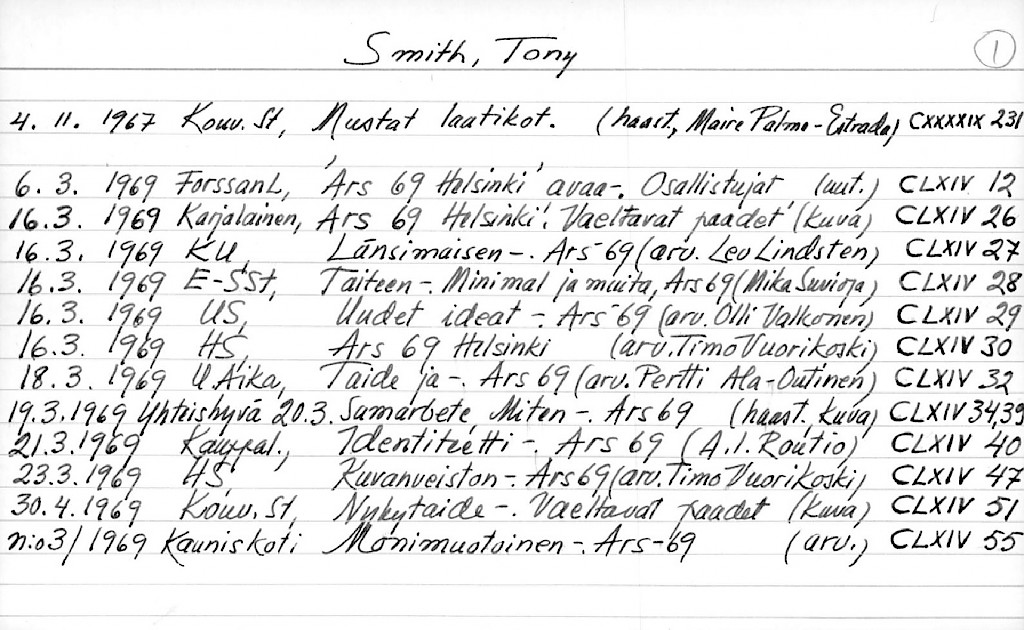 Smith, Tony 1
4. 11. 1967 Kouv. St, Mustat laatikot. (haast., Maire Palmo-Estrada) CXXXXIX 231
6. 3. 1969 ForssanL, 'Ars 69 Helsinki' avaa-. Osallistujat (uut.) CLXIV 12
16.3. 1969 Karjalainen, Ars 69 Helsinki. 'Vaeltavat paadet' (kuva) CLXIV 26
16.3. 1969 KU, Länsimaisen-. Ars 69 (arv. Leo Lindsten) CLXIV 27
16.3. 1969 E-SSt, Taiteen-. Minimal ja muita, Ars 69 (Mika Suvioja) CLXIV 28
16.3. 1969 US, Uudet ideat-. Ars 69 (arv. Olli Valkonen) CLXIV 29
16.3. 1969 HS, Ars 69 Helsinki (arv. Timo Vuorikoski) CLXIV 30
18.3. 1969 U Aika, Taide ja-. Ars 69 (arv. Pertti Ala-Outinen) CLXIV 32
19.3.1969 Yhteishyvä 20.3. Samarbete Miten-. Ars 69 (haast. kuva) CLXIV 34,39
21.3.1969 Kauppal., Identiteetti-. Ars 69 (A.I. Routio) CLXIV 40
23.3.1969 HS, Kuvanveiston-. Ars 69 (arv. Timo Vuorikoski) CLXIV 47
30.4.1969 Kouv. St, Nykytaide-. Vaeltavat paadet (kuva) CLXIV 51
n:o 3/1969 Kauniskoti Monimuotoinen-. Ars-69 (arv.) CLXIV 55